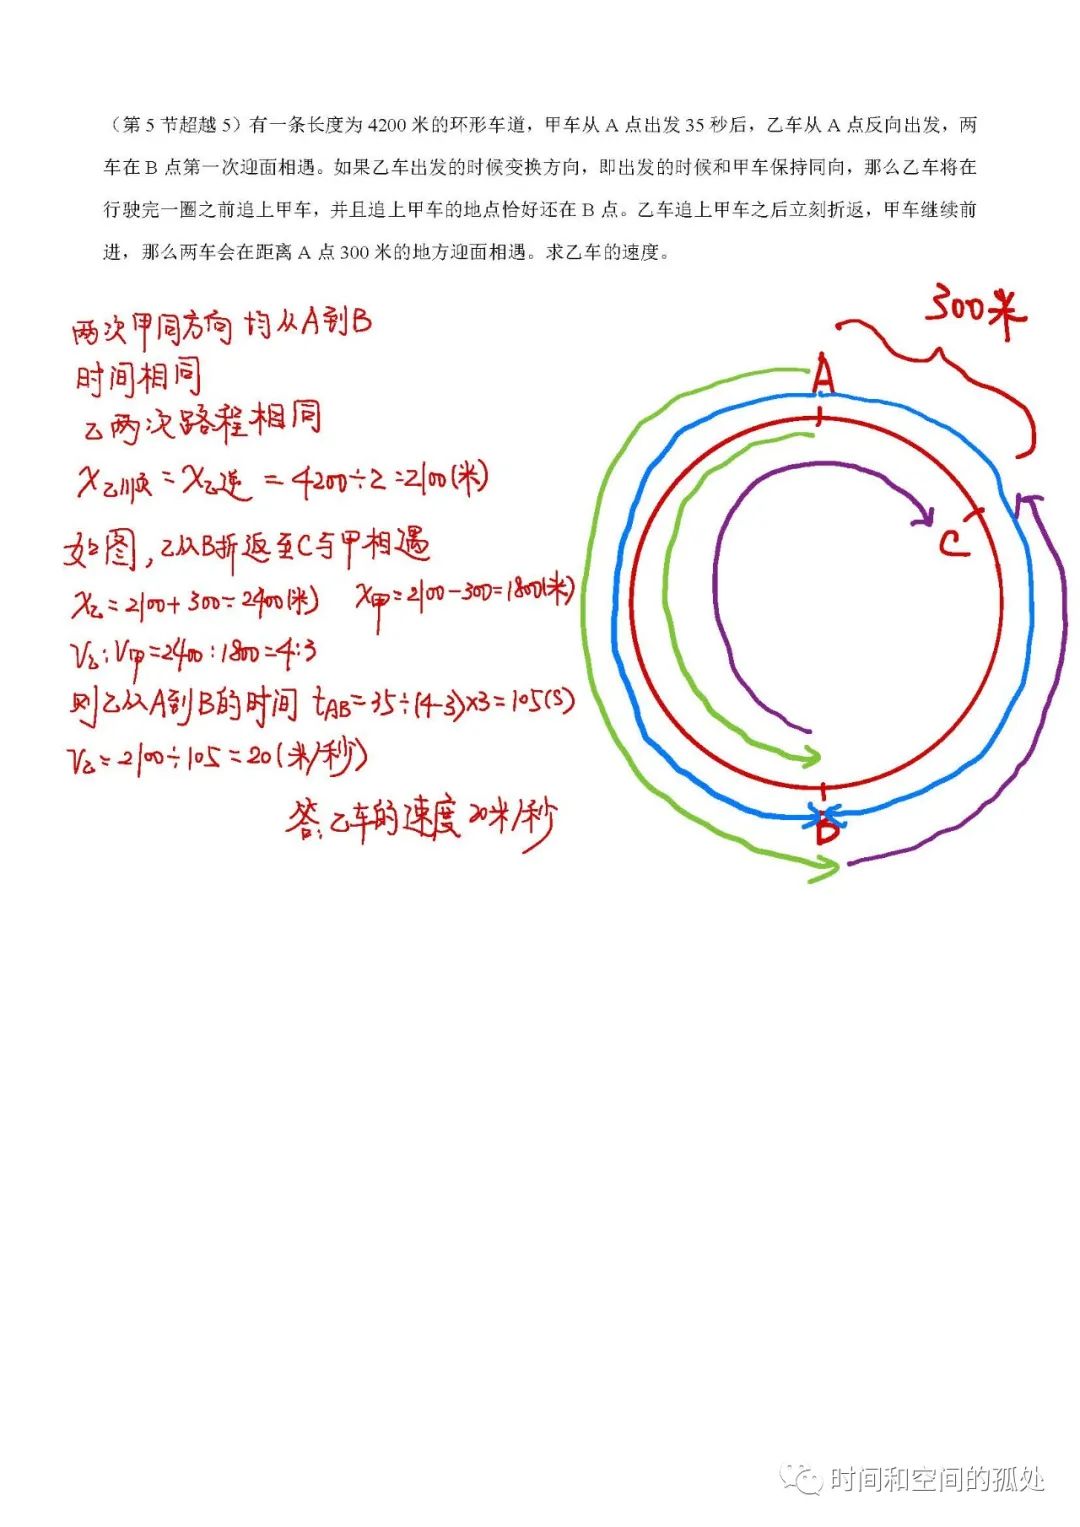 （第5节超越5）有一条长度为4200米的环形车道，甲车从A点出发35秒后，乙车从A点反向出发，两
车在B点第一次迎面相遇。如果乙车出发的时候变换方向，即出发的时候和甲车保持同向，那么乙车将在
行驶完一圈之前追上甲车，并且追上甲车的地点恰好还在B点。乙车追上甲车之后立刻折返，甲车继续前
进，那么两车会在距离A点300米的地方迎面相遇。求乙车的速度。
300米
两次甲同方向 均从A到B
时间相同
乙两次路程相同
x乙顺=x乙逆=4200÷2=2100(米)
如图,乙从B折返至C与甲相遇
x乙=2100+300=2400(米) x甲=2100-300=1800(米)
v乙:v甲=2400:1800=4:3
则乙从A到B的时间 tAB=35÷(4-3)×3=105(s)
v乙=2100÷105=20(米/秒)
答:乙车的速度20米/秒
A
C
B
时间和空间的孤处